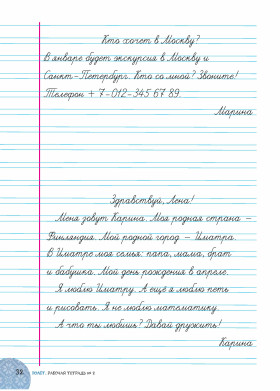 Кто хочет в Москву?
В январе будет экскурсия в Москву и
Санкт-Петербург. Кто со мной? Звоните!
Телефон + 7-012-345 67 89.
Марина
Здравствуй, Лена!
Меня зовут Карина. Моя родная страна –
Финляндия. Мой родной город – Иматра.
В Иматре моя семья: папа, мама, брат
и бабушка. Мой день рождения в апреле.
Я люблю Иматру. А ещё я люблю петь
и рисовать. Я не люблю математику.
А что ты любишь? Давай дружить!
Карина
32 ПОЛЁТ. РАБОЧАЯ ТЕТРАДЬ № 2